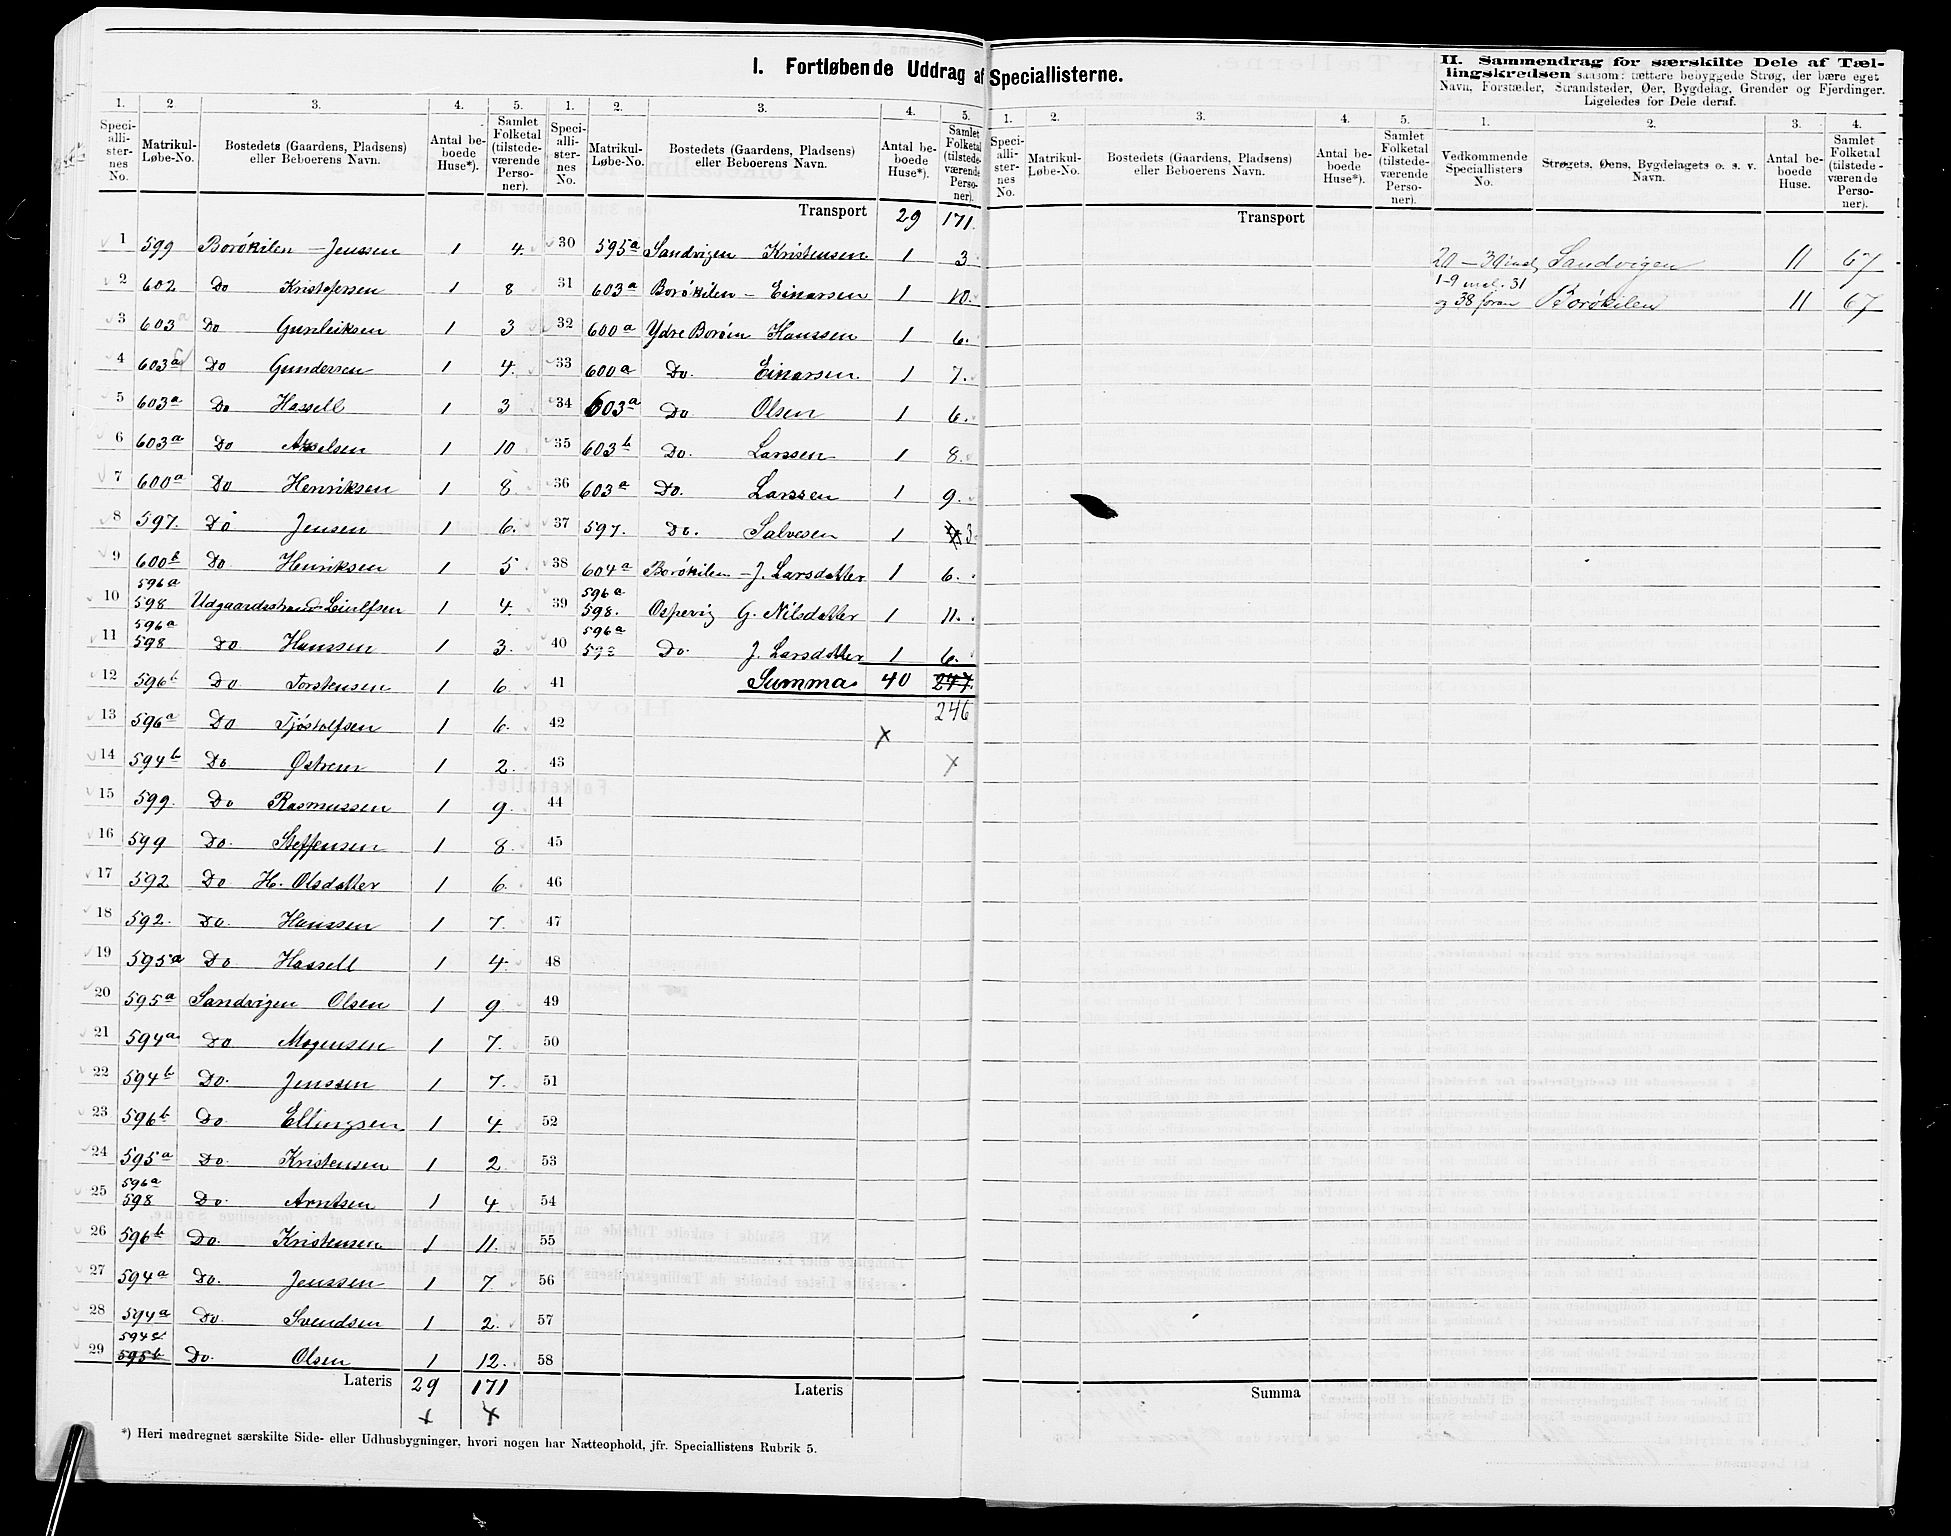 I. Fortløbende Uddrag af Speciallisterne.
II. Sammendrag for særskilte Dele af Tællingskredsen saasom: tættere bebyggede Strøg, der bære eget
Navn, Forstæder, Strandsteder, Øer, Bygdelag, Grender og Fjerdinger.
Ligeledes for Dele deraf.
1. 2 3. 4. 5.
Speciallisternes No. Matrikul-Løbe-No. Bostedets (Gaardens, Pladsens) eller Beboerens Navn. Antal beboede Huse*). Samlet Folketal (tilstedeværende Personer).
1 599 Borøkilen — Jenssen 1 4.
2 602 Do Kristofersen 1 8
3 603 Do Gunleiksen 1 3
4 603a Do Gundersen 1 4.
5 603a Do Hassell 1 3
6 603a Do Akselsen 1 10
7 600a Do Henriksen 1 8
8 597. Do Jensen 1 6.
9 600b Do Henriksen 1 5
10 596a 598 Udgaardsstrand Leiulfsen 1 4.
11 596a 598 Do Hanssen 1 3.
12 596b Do Torstensen 1 6.
13 596a Do Tjøstolfsen 1 6.
14 594b Do Østren 1 2.
15 599. Do Rasmussen 1 9.
16 599 Do. Steffensen 1 8.
17 592 Do H. Olsdatter 1 6.
18 592. Do. Hanssen 1 7.
19 595a Do Hassell 1 4.
20 595a Sandvigen Olsen 1 9
21 594a Do Mogensen 1 7.
22 594b Do. Jenssen 1 7.
23 596b Do. Ellingsen 1 4
24 595a Do. Kristensen 1 2.
25 596a 598 Do. Arntsen 1 4
26 596b Do. Kristensen 1 11.
27 594a Do. Jenssen 1 7.
28 594a Do. Svendsen 1 2.
29 594 595b Do. Olsen 1 12.
Lateris 29 171
*) Heri medregnet særskilte Side- eller Udhusbygninger, hvori nogen har Natteophold, jfr. Speciallistens Rubrik 5.
1. 2. 3. 4. 5.
Speciallisternes No. Matrikul-Løbe-No. Bostedets (Gaardens, Pladsens) eller Beboerens Navn. Antal beboede Huse*). Samlet Folketal (tilstedeværende Personer).
Transport 29 171.
30 595a Sandvigen Kristensen 1 3
31 603a Borøkilen — Einarsen 1 10.
32 600a Ydre Borøen Hanssen 1 6.
33 600a Do. Einarsen. 1 7.
34 603a Do Olsen 1 6.
35 603b Do. Larssen 1 8.
36 603a Do. Larssen 1 9.
37 597. Do. Salvesen 1 3.
38 604a Borøkilen — J. Larsdatter 1 6.
39 596a 598. Ospevig G. Nilsdatter 1 11.
40 596a 598 Do. J. Larsdatter 1 6.
41 Summa. 40 247.
42 246
43
44
45
46
47
48
49
50
51
52
53
54
55
56
57
58
Lateris
1. 2. 3. 4. 5.
Speciallisternes No. Matrikul-Løbe-No. Bostedets (Gaardens, Pladsens) eller Beboerens Navn. Antal beboede Huse*). Samlet Folketal (tilstedeværende Personer).
Transport
Summa
1. 2. 3. 4.
Vedkommende Speciallisters No. Strøgets, Øens, Bygdelagets o. s. v. Navn. Antal beboede Huse. Samlet Folketal (tilstedeværende Personer).
20 — 30 incl, Sandvigen 11 67
1-9 incl. 31
og 38 foran Borøkilen 11 67